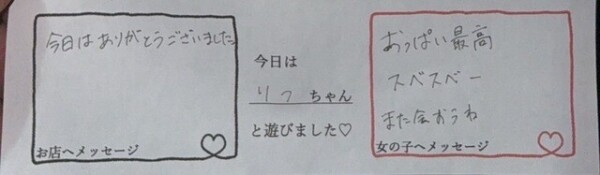 今日はありがとうございました
お店へメッセージ
今日は
りっちゃん
と遊びました♡
おっぱい最高
スベスベー
また会おうね
女の子へメッセージ